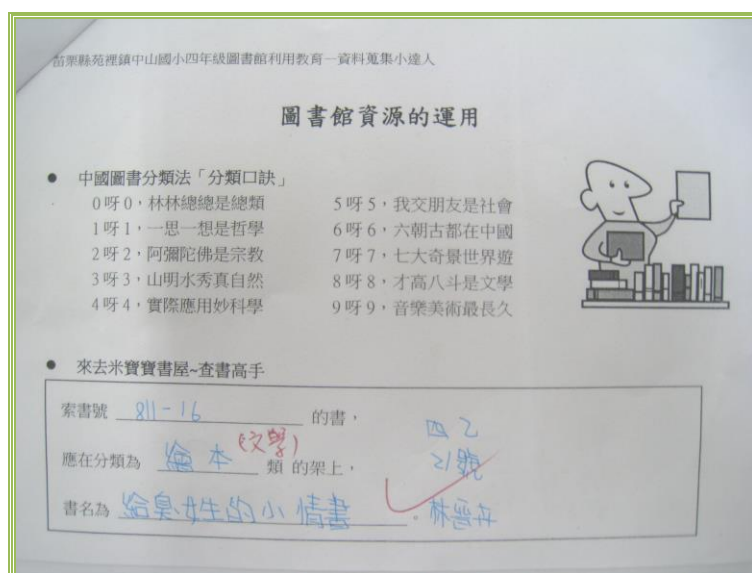 苗栗縣苑裡鎮中山國小四年級圖書館利用教育－資料蒐集小達人
圖書館資源的運用
● 中國圖書分類法「分類口訣」
0呀0，林林總總是總類
1呀1，一思一想是哲學
2呀2，阿彌陀佛是宗教
3呀3，山明水秀真自然
4呀4，實際應用妙科學
5呀5，我交朋友是社會
6呀6，六朝古都在中國
7呀7，七大奇景世界遊
8呀8，才高八斗是文學
9呀9，音樂美術最長久
● 來去米寶寶書屋~查書高手
索書號 811-16 的書，
(文學)
應在分類為 繪本 類 的架上，
書名為 給臭女生的小情書。
四乙
21號
林